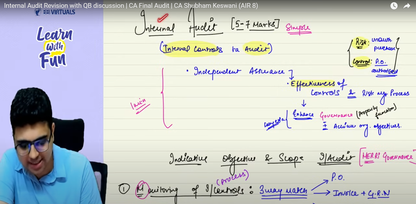 Internal Audit Revision with QB discussion | CA Final Audit | CA Shubham Keswani (AIR 8)
VIRTUALS
Learn
With
Fun
Internal Audit [5-7 Marks] Simple
(Internal Controls to Audit)
Risk:
Control: P.O.
authorised
• Independent Assurance
Effectiveness of
Controls & Risk mg Process
Enhance Governance
Achieve org. objectives
Indicative Objective & Scope I/Audit
① Monitoring of I/Controls: 3 way match
(Process)
P.O.
Invoice + G.R.N